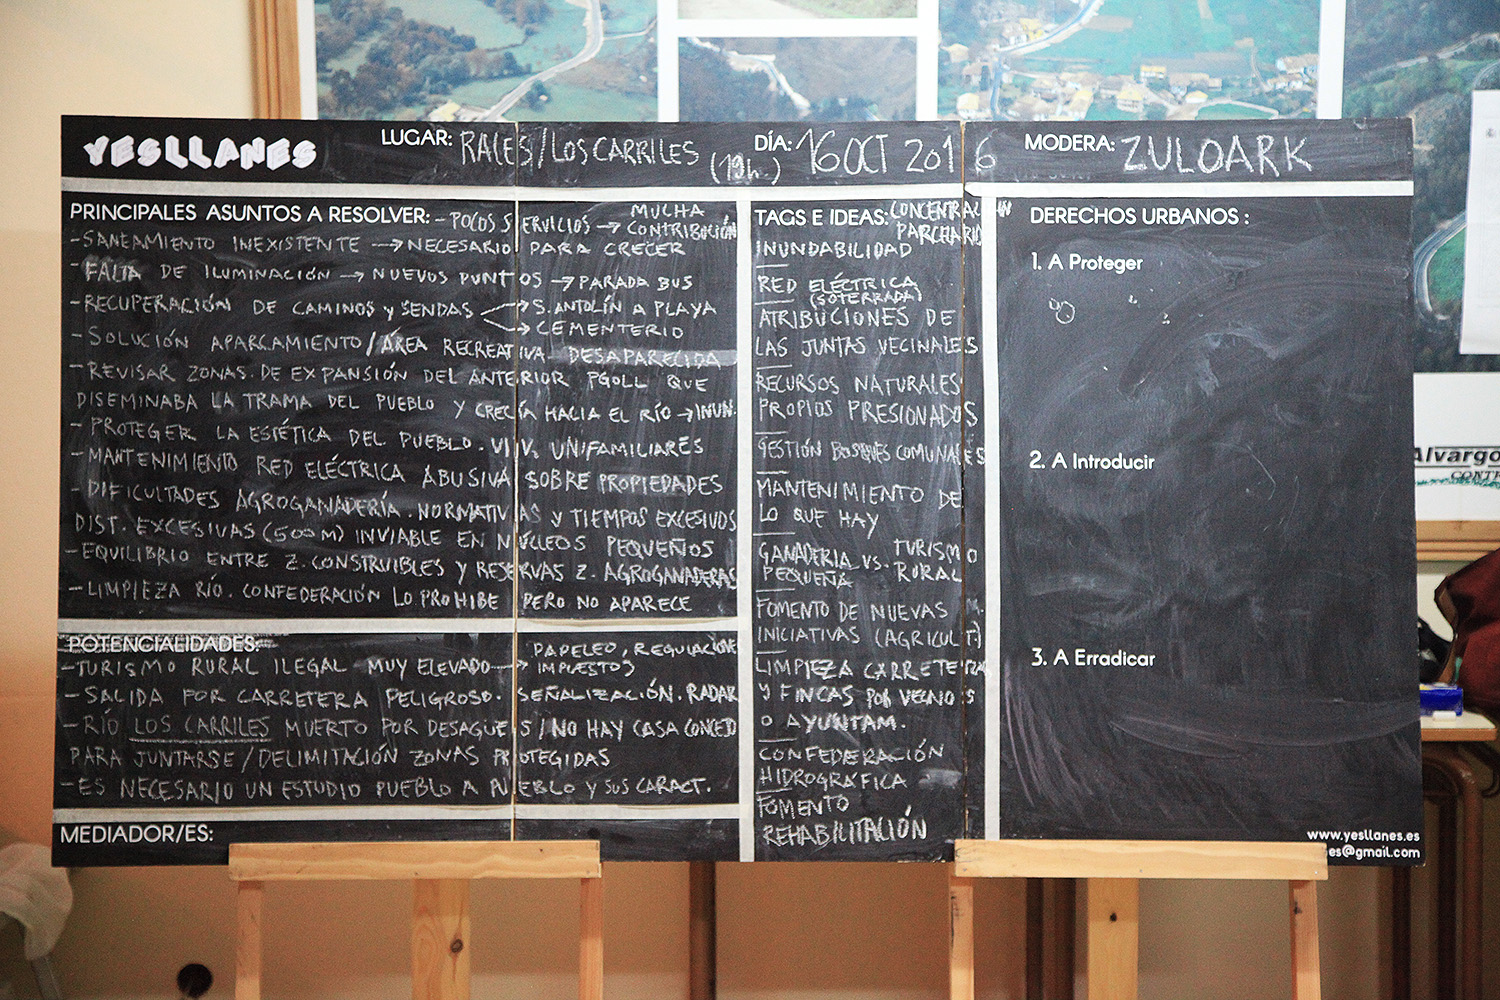 YESLLANES
LUGAR: RALES/LOS CARRILES (19h.)
DÍA: 16 OCT 2016
MODERA: ZULOARK
PRINCIPALES ASUNTOS A RESOLVER: - POCOS SERVICIOS → MUCHA CONTRIBUCIÓN
- SANEAMIENTO INEXISTENTE → NECESARIO PARA CRECER
- FALTA DE ILUMINACIÓN → NUEVOS PUNTOS → PARADA BUS
- RECUPERACIÓN DE CAMINOS y SENDAS → S. ANTOLÍN A PLAYA
→ CEMENTERIO
- SOLUCIÓN APARCAMIENTO / ÁREA RECREATIVA DESAPARECIDA
- REVISAR ZONAS DE EXPANSIÓN DEL ANTERIOR PGOLL QUE
DISEMINABA LA TRAMA DEL PUEBLO Y CRECÍA HACIA EL RÍO → INUN.
- PROTEGER LA ESTÉTICA DEL PUEBLO. VIV. UNIFAMILIARES
- MANTENIMIENTO RED ELÉCTRICA ABUSIVA SOBRE PROPIEDADES
- DIFICULTADES AGROGANADERÍA. NORMATIVAS Y TIEMPOS EXCESIVOS
DIST. EXCESIVAS (500M) INVIABLE EN NÚCLEOS PEQUEÑOS
- EQUILIBRIO ENTRE Z. CONSTRUIBLES Y RESERVAS Z. AGROGANADERAS
- LIMPIEZA RÍO. CONFEDERACIÓN LO PROHIBE PERO NO APARECE
POTENCIALIDADES:
- TURISMO RURAL ILEGAL MUY ELEVADO → PAPELEO, REGULACIONE
IMPUESTOS
- SALIDA POR CARRETERA PELIGROSO. SEÑALIZACIÓN. RADAR
- RÍO LOS CARRILES MUERTO POR DESAGÜES / NO HAY CASA CONCEJO
PARA JUNTARSE / DELIMITACIÓN ZONAS PROTEGIDAS
- ES NECESARIO UN ESTUDIO PUEBLO A PUEBLO Y SUS CARACT.
MEDIADOR/ES:
TAGS E IDEAS: CONCENTRACIÓN
PARCELARIA
INUNDABILIDAD
RED ELÉCTRICA
(SOTERRADA)
ATRIBUCIONES DE
LAS JUNTAS VECINALES
RECURSOS NATURALES
PROPIOS PRESIONADOS
GESTIÓN BOSQUES COMUNALES
MANTENIMIENTO DE
LO QUE HAY
GANADERIA PEQUEÑA VS. TURISMO RURAL
FOMENTO DE NUEVAS
INICIATIVAS (AGRICULT.)
LIMPIEZA CARRETERA
Y FINCAS POR VECINOS
O AYUNTAM.
CONFEDERACIÓN
HIDROGRÁFICA
FOMENTO
REHABILITACIÓN
DERECHOS URBANOS :
1. A Proteger
2. A Introducir
3. A Erradicar
www.yesllanes.es
es@gmail.com
Alvargo
CONT